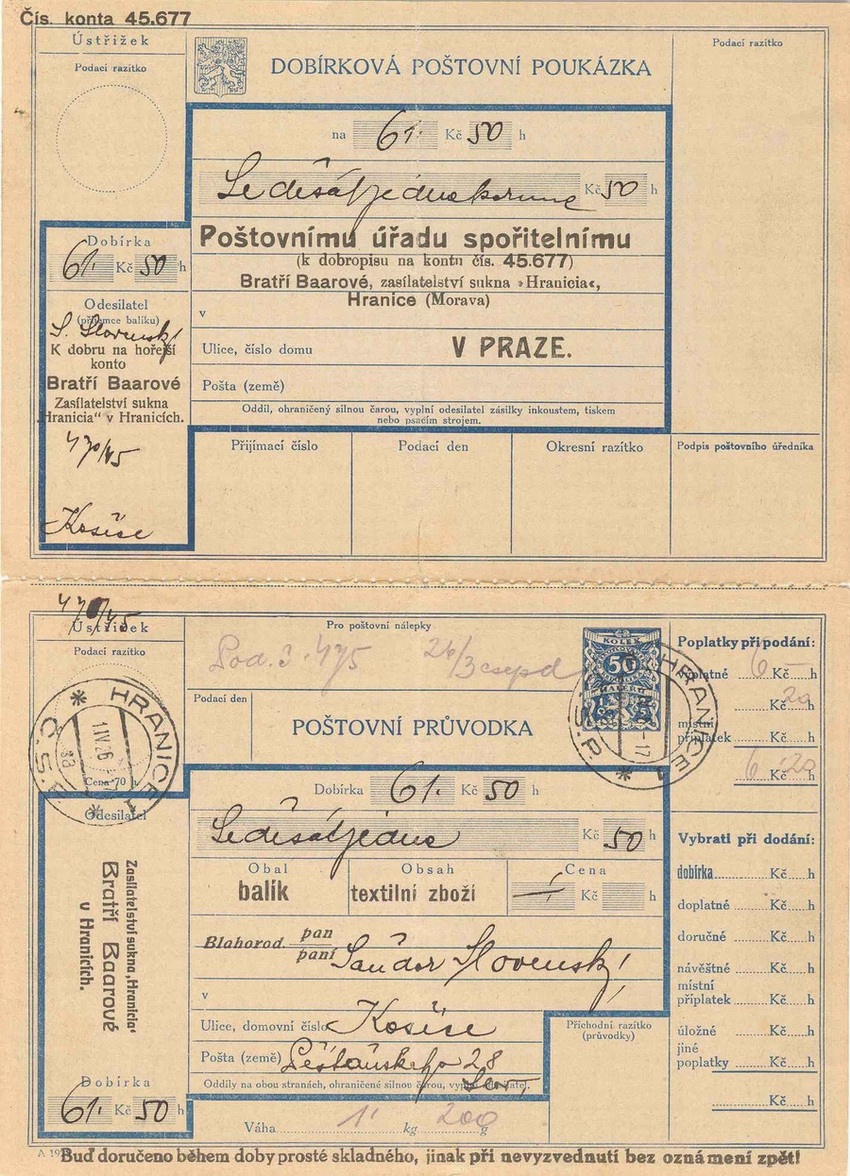 Čís. konta 45.677
Ústřižek
Podací razítko
DOBÍRKOVÁ POŠTOVNÍ POUKÁZKA
Podací razítko
na 61· Kč 50 h
Šedesátjednakoruna Kč 50 h
Poštovnímu úřadu spořitelnímu
(k dobropisu na kontu čís. 45.677)
Bratří Baarové, zasílatelství sukna »Hranicia«,
Hranice (Morava)
v
Ulice, číslo domu V PRAZE.
Pošta (země)
Oddíl, ohraničený silnou čarou, vyplní odesilatel zásilky inkoustem, tiskem
nebo psacím strojem.
Dobírka
61· Kč 50 h
Odesilatel
(příjemce balíku)
S. Slovenský
K dobru na hořejší
konto
Bratří Baarové
Zasílatelství sukna
„Hranicia“ v Hranicích.
470/45
Košice
Přijímací číslo
Podací den
Okresní razítko
Podpis poštovního úředníka
470/45
Ústřižek
Podací razítko
Cena 70 h
HRANICE 1
Č.S.P.
1.IV.26
Pro poštovní nálepky
Pod. č. 475 26/3
Podací den
POŠTOVNÍ PRŮVODKA
KOLEK
50
HALÉŘŮ
HRANICE 1
Poplatky při podání:
6 — Kč h
Kč 20 h
místní
příplatek Kč h
6 20 Kč h
Odesilatel
Zasílatelství sukna „Hranicia“
Bratří Baarové
v Hranicích.
Dobírka
61· Kč 50 h
Dobírka 61· Kč 50 h
Šedesátjedna Kč 50 h
Obal
balík
Obsah
textilní zboží
Cena
Kč h
Blahorod. pan
paní Sándor Slovenský
v
Ulice, domovní číslo Košice
Pošta (země) 28
Oddíly na obou stranách, ohraničené silnou čarou, vyplní odesilatel.
Váha 1 kg 200 g
Příchodní razítko
(průvodky)
Vybrati při dodání:
dobírka Kč h
doplatné Kč h
doručné Kč h
návěštné Kč h
místní
příplatek Kč h
úložné Kč h
jiné
poplatky Kč h
Kč h
Buď doručeno během doby prosté skladného, jinak při nevyzvednutí bez oznámení zpět!